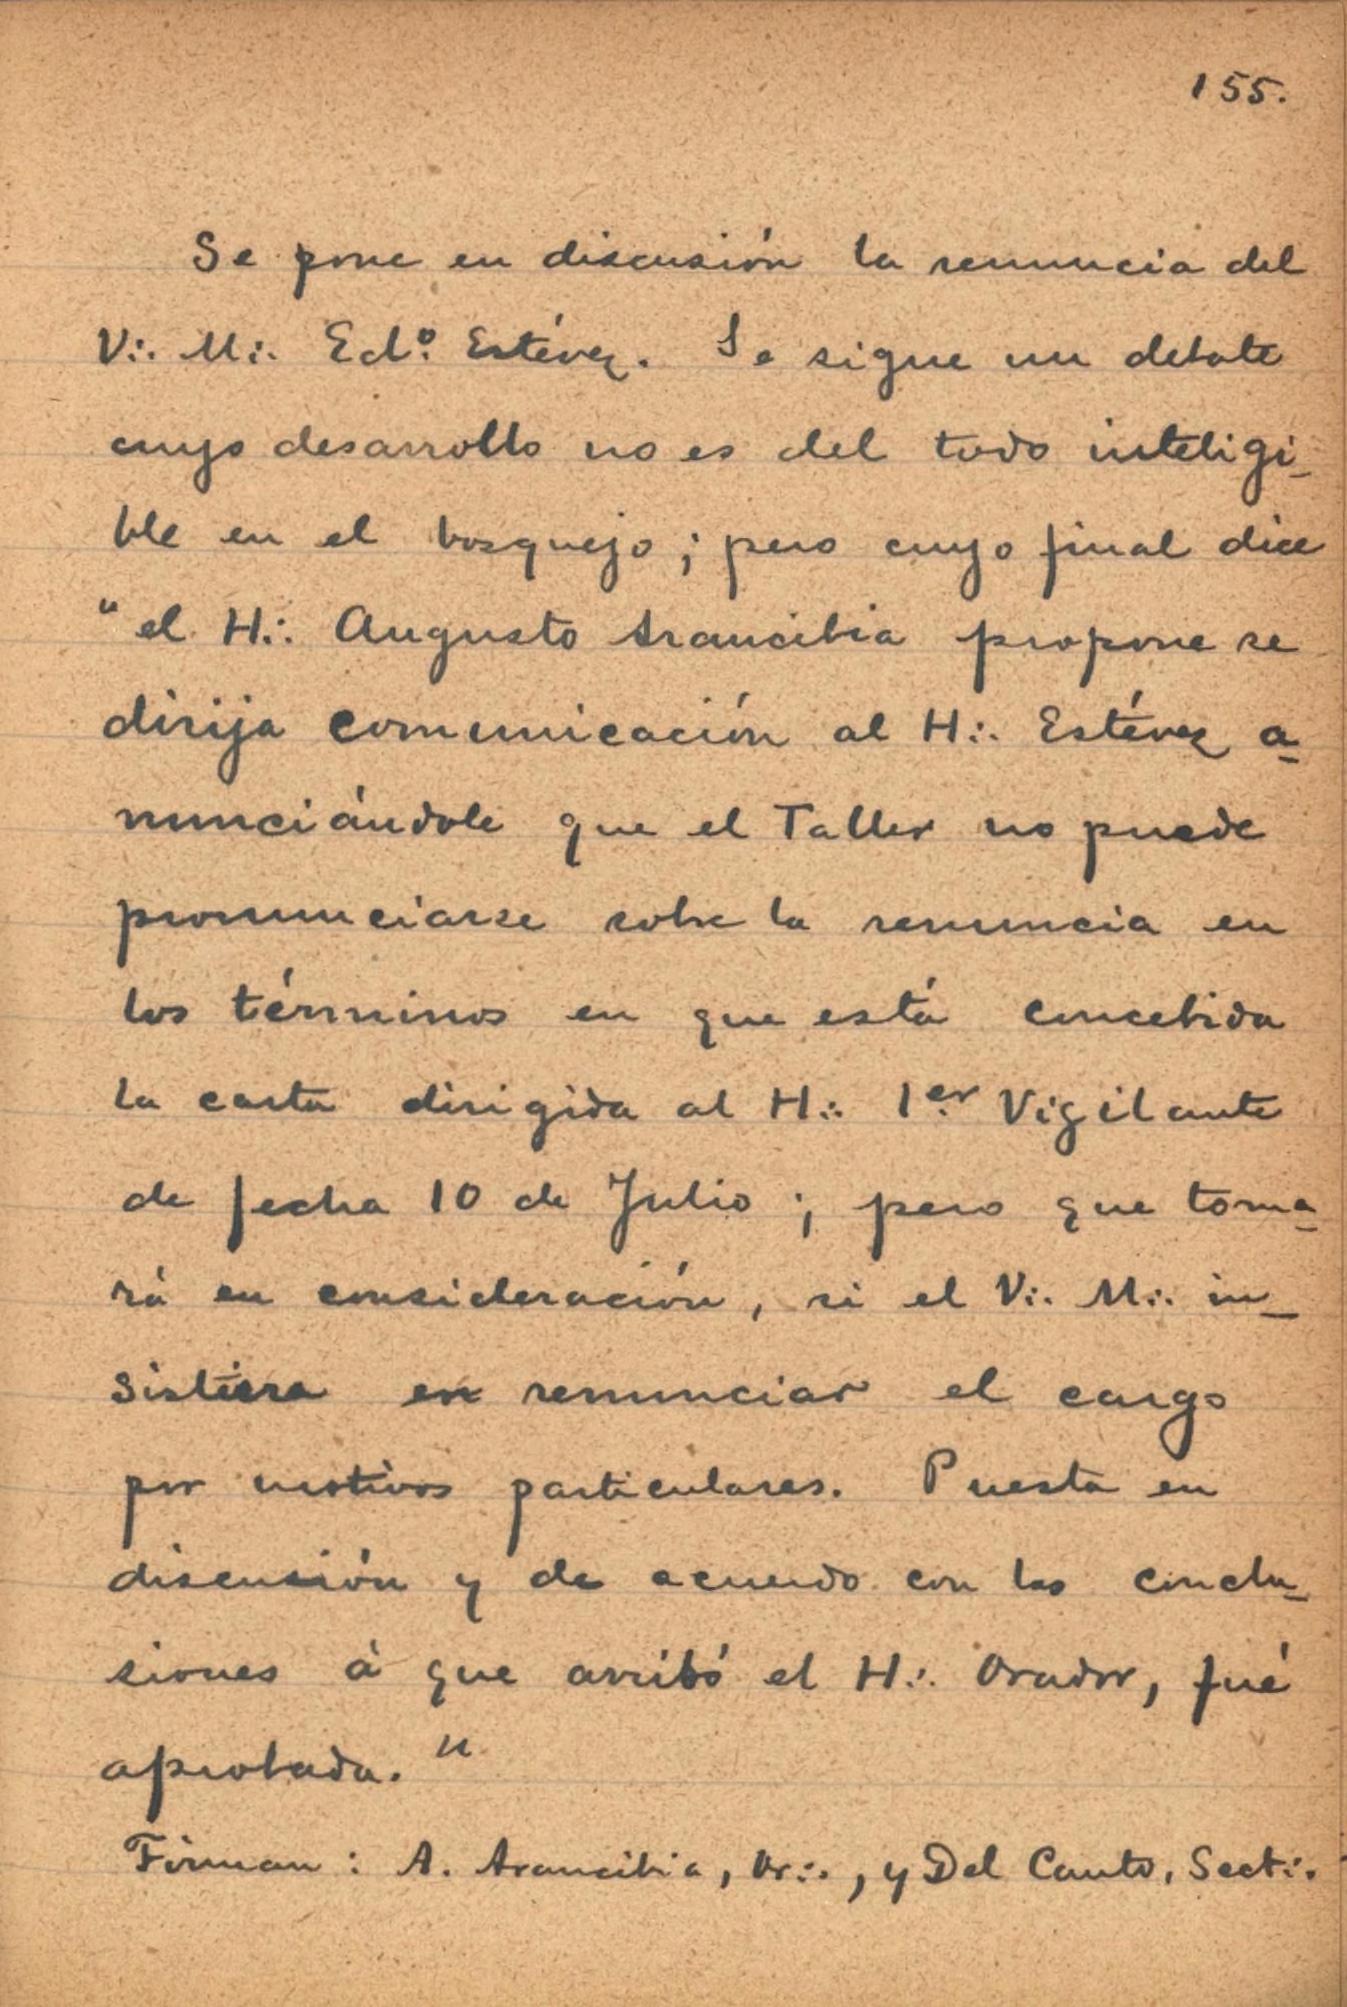 155.
Se pone en discusión la renuncia del
V∴ M∴ Edº. Estévez. Se sigue un debate
cuyo desarrollo no es del todo inteligi-
ble en el bosquejo; pero cuyo final dice
"el H∴ Augusto Arancibia propone se
dirija comunicación al H∴ Estévez a-
nunciándole que el Taller no puede
pronunciarse sobre la renuncia en
los términos en que está concebida
la carta dirigida al H∴ 1er Vigilante
de fecha 10 de Julio; pero que toma-
rá en consideración, si el V∴ M∴ in-
sistiera en renunciar el cargo
por motivos particulares. Puesta en
discusión y de acuerdo con las conclu-
siones á que arribó el H∴ Orador, fué
aprobada."
Firman: A. Arancibia, Or∴, y Del Canto, Sect∴